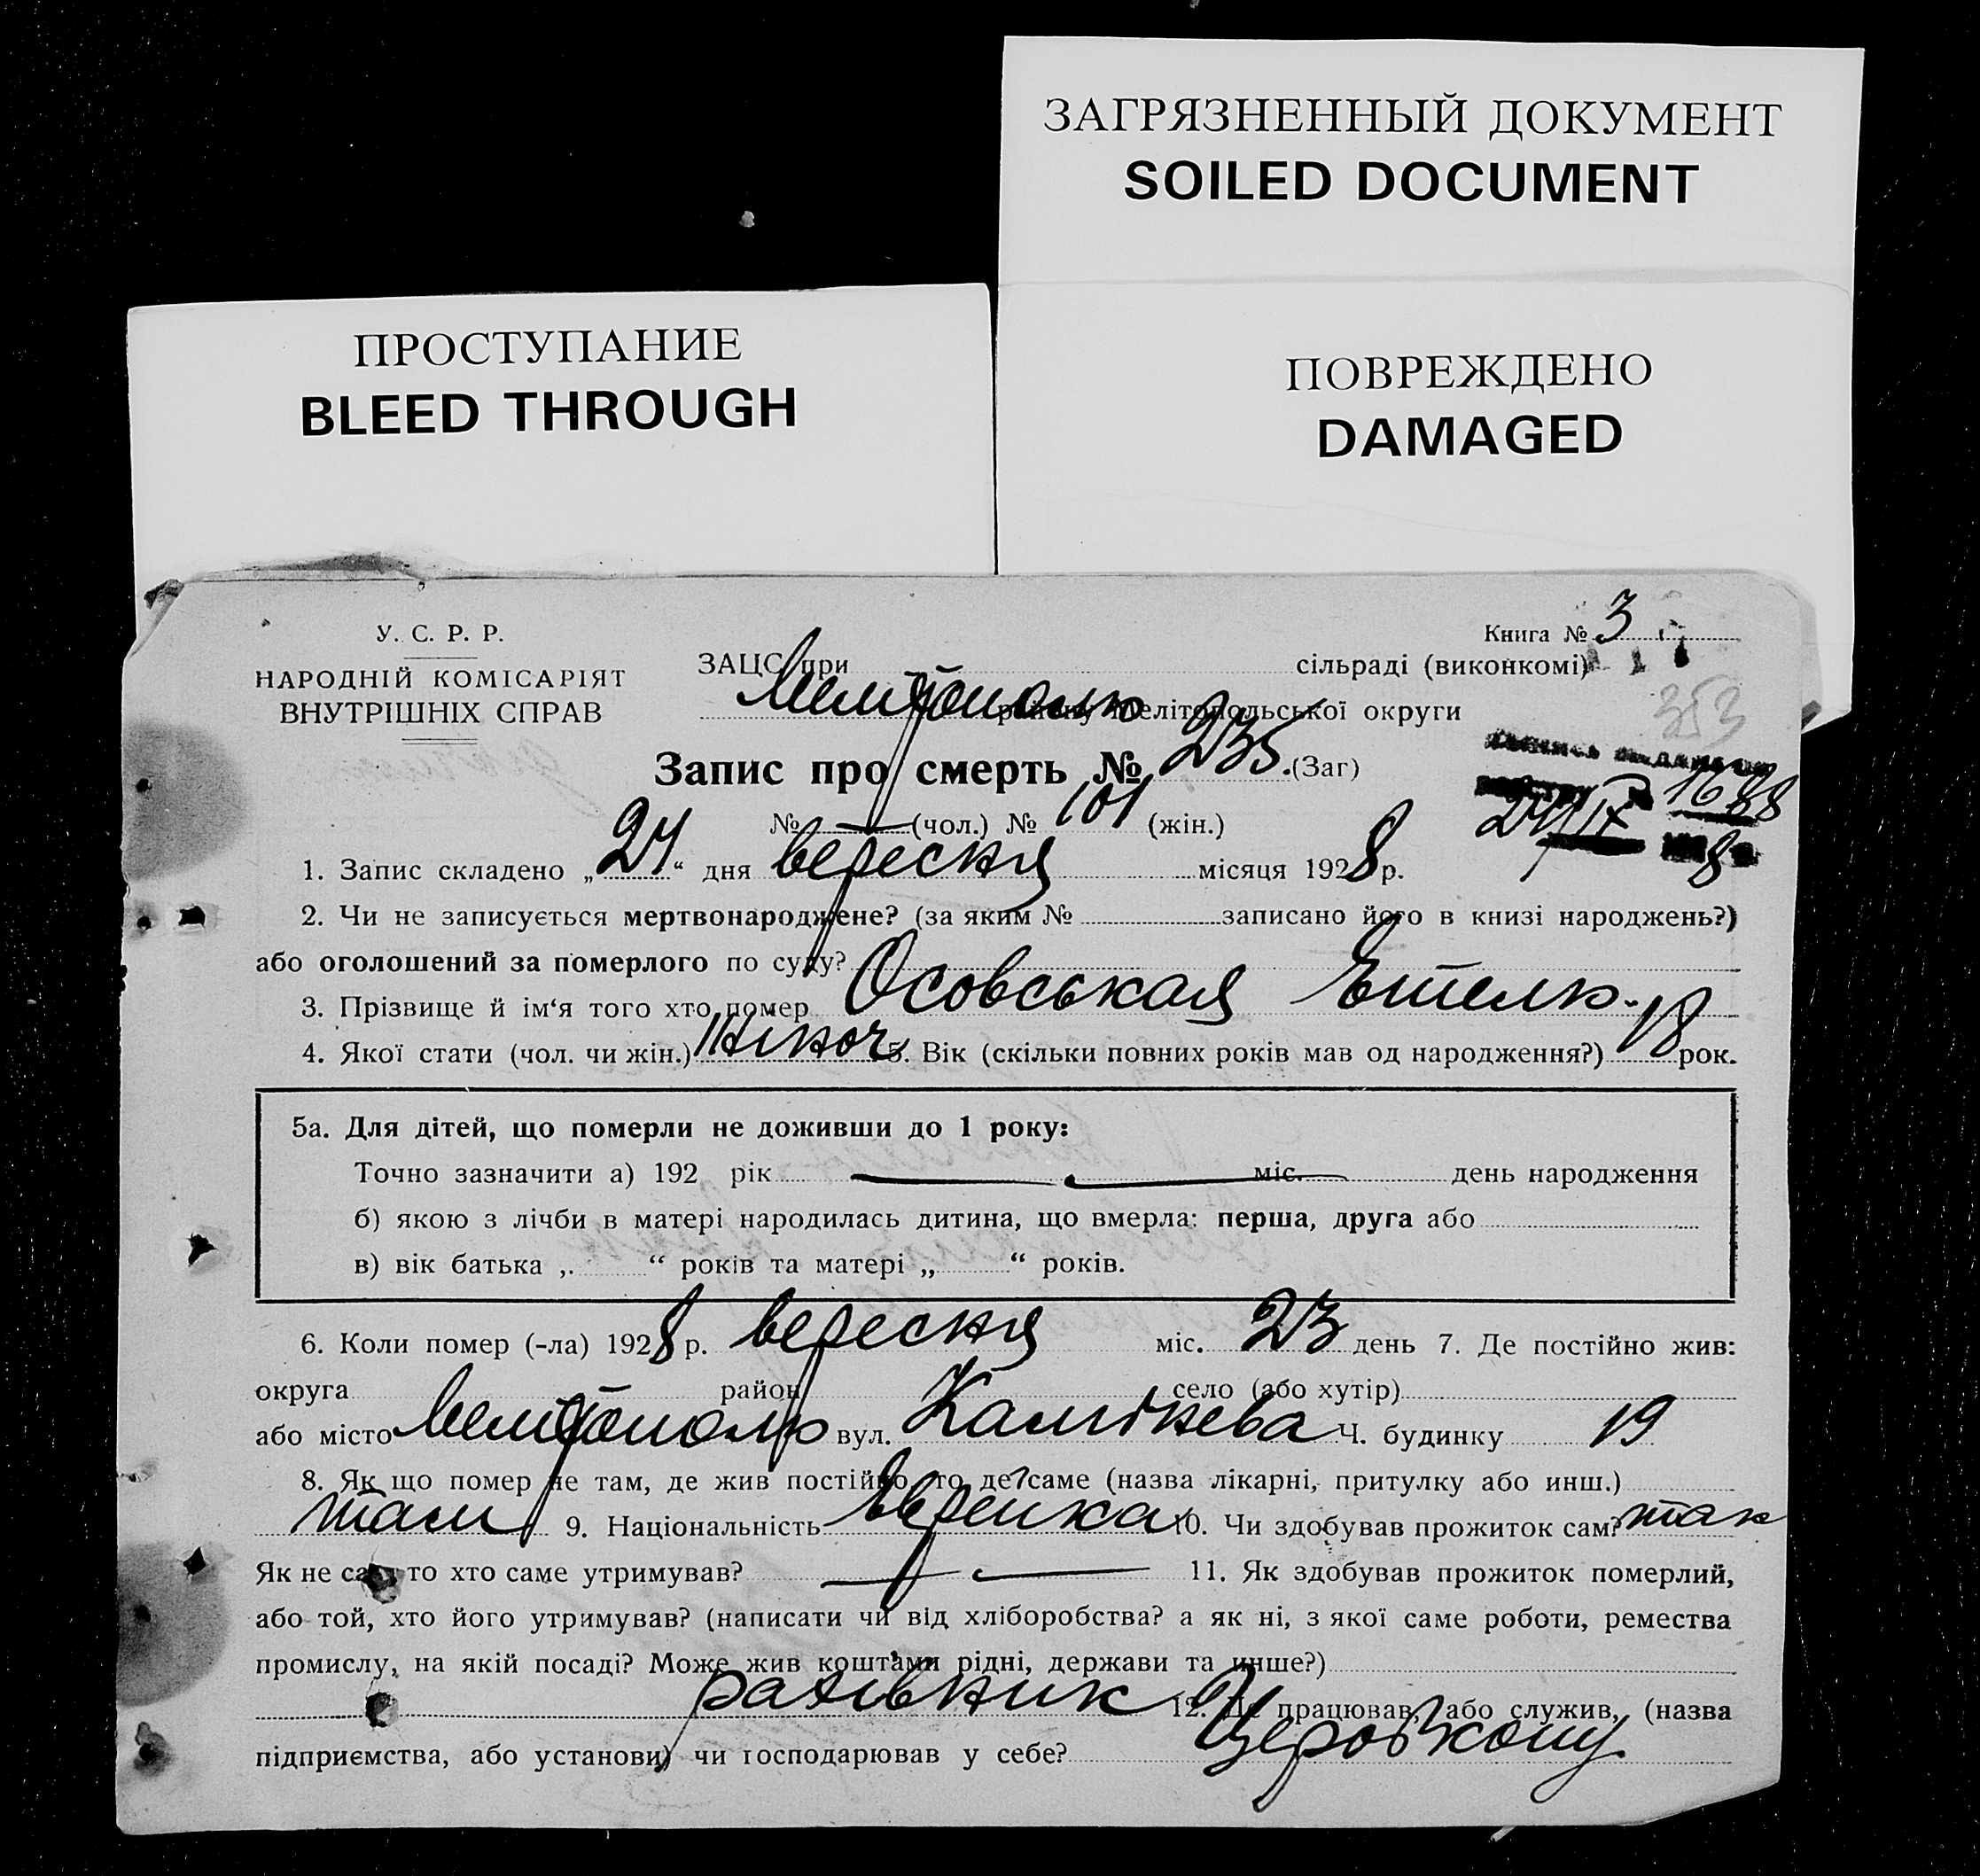 ЗАГРЯЗНЕННЫЙ ДОКУМЕНТ
SOILED DOCUMENT
ПРОСТУПАНИЕ
BLEED THROUGH
ПОВРЕЖДЕНО
DAMAGED
У. С. Р. Р.
НАРОДНІЙ КОМІСАРІЯТ
ВНУТРІШНІХ СПРАВ
Книга № 3
353
ЗАЦС при сільраді (виконкомі)
району Мелітопольської округи
Запис про смерть № 235 (Заг)
№ — (чол.) № 101 (жін.)
1688
24/IX 8
1. Запис складено „24“ дня вересня місяця 1928 р.
2. Чи не записується мертвонароджене? (за яким № записано його в книзі народжень?)
або оголошений за померлого по суду?
3. Прізвище й ім‘я того хто помер Осовськая Етель
4. Якої стати (чол. чи жін.) жіноч 5. Вік (скільки повних років мав од народження?) 18 рок.
5а. Для дітей, що померли не доживши до 1 року:
Точно зазначити а) 192 рік — міс. — день народження
б) якою з лічби в матері народилась дитина, що вмерла: перша, друга або
в) вік батька „ “ років та матері „ “ років.
6. Коли помер (-ла) 1928 р. вересня міс. 23 день 7. Де постійно жив:
округа район село (або хутір)
або місто Мелітополь вул. Ч. будинку 19
8. Як що помер не там, де жив постійно, то де саме (назва лікарні, притулку або инш.)
там 9. Національність Еврейка 10. Чи здобував прожиток сам? так
Як не сам то хто саме утримував? — — 11. Як здобував прожиток померлий,
або той, хто його утримував? (написати чи від хліборобства? а як ні, з якої саме роботи, ремества
промислу, на якій посаді? Може жив коштами рідні, держави та инше?)
рахівник 12. Де працював, або служив, (назва
підприємства, або установи) чи господарював у себе? Церобкопу